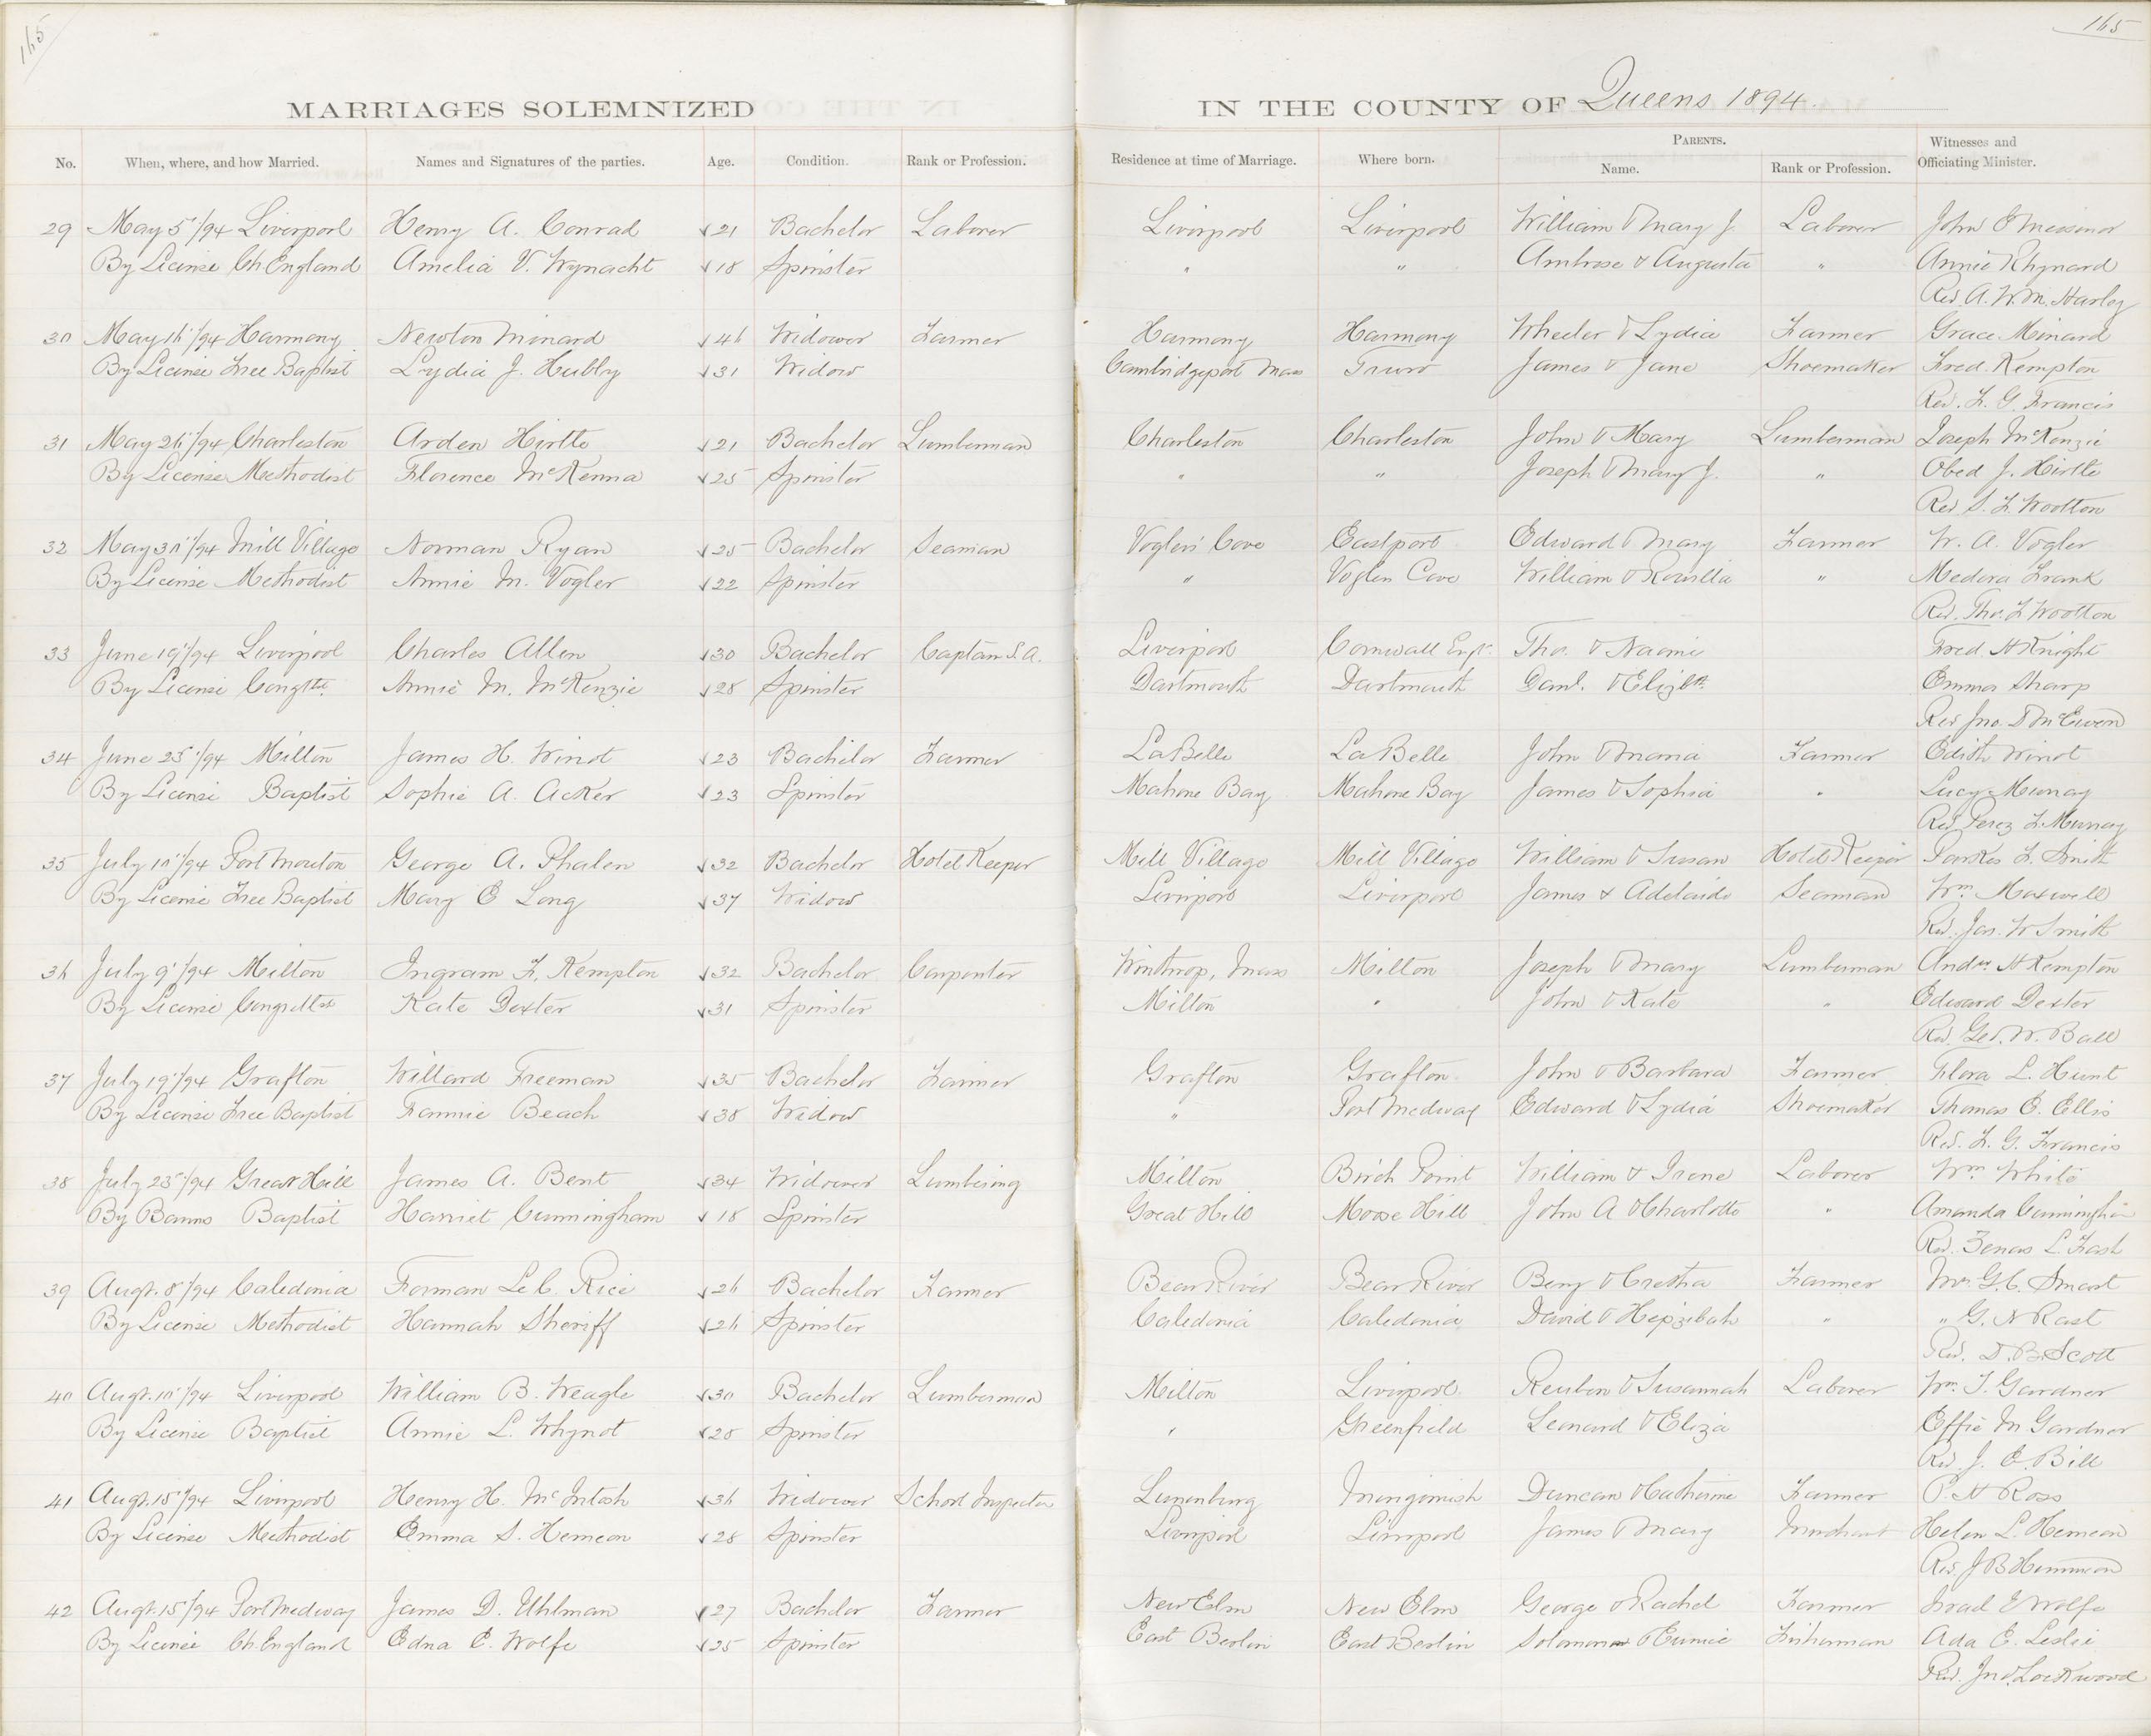 165
165
MARRIAGES SOLEMNIZED IN THE COUNTY OF Queens 1894.
No. When, where, and how Married. Names and Signatures of the parties. Age. Condition. Rank or Profession. Residence at time of Marriage. Where born. PARENTS. Name. Rank or Profession. Witnesses and Officiating Minister.
29 May 5/94 Liverpool Henry A. Conrad 21 Bachelor Laborer Liverpool Liverpool William & Mary J. Laborer John E Messenor
By License Ch England Amelia V. Wynacht 18 Spinster " " Ambrose & Augusta " Annie Rhynard
Rev A. W. M. Harley
30 May 16/94 Harmony Newton Minard 46 Widower Farmer Harmony Harmony Wheeler & Lydia Farmer Grace Minard
By License Free Baptist Lydia J. Hubley 31 Widow Cambridgeport Mass Truro James & Jane Shoemaker Fred Kempton
Rev. F. G. Francis
31 May 26/94 Charleston Arden Hirtle 21 Bachelor Lumberman Charleston Charleston John & Mary Lumberman Joseph McKenzie
By License Methodist Florence McKenna 25 Spinster " " Joseph & Mary J. " Obed J. Hirtle
Rev S. F. Wootton
32 May 30/94 Mill Village Norman Ryan 25 Bachelor Seaman Voglers Cove Eastport Edward & Mary Farmer W. A. Vogler
By License Methodist Annie M. Vogler 22 Spinster " Voglers Cove William & Rowilla " Medora Frank
Rev. Tho. F Wootton
33 June 19/94 Liverpool Charles Allen 30 Bachelor Captain S.A. Liverpool Cornwall Engd. Tho. & Naomi Fred. H Knight
By License Congtl Annie M. McKenzie 28 Spinster Dartmouth Dartmouth Danl. & Elizbth Emma Sharp
Rev Jno. D McEwen
34 June 25/94 Milton James H. Winot 23 Bachelor Farmer LaBelle LaBelle John & Maria Farmer Edith Winot
By License Baptist Sophie A. Acker 23 Spinster Mahone Bay Mahone Bay James & Sophia " Lucy Murray
Rev Perez F. Murray
35 July 10/94 Port Mouton George A. Phalen 32 Bachelor Hotel Keeper Mill Village Mill Village William & Susan Hotel Keeper Parkes F. Smith
By License Free Baptist Mary E Long 37 Widow Liverpool Liverpool James & Adelaide Seaman Wm Maxwell
Rev. Jas. W Smith
36 July 9/94 Milton Ingram F. Kempton 32 Bachelor Carpenter Winthrop, Mass Milton Joseph & Mary Lumberman Andw H Kempton
By License Kate Dexter 31 Spinster Milton " John & Kate " Edward Dexter
Rev. Geo. W. Ball
37 July 19/94 Grafton Willard Freeman 35 Bachelor Farmer Grafton Grafton John & Barbara Farmer Flora L. Hunt
By License Free Baptist Fannie Beach 38 Widow " Port Medway Edward & Lydia Shoemaker Thomas E. Ellis
Rev. F. G. Francis
38 July 23/94 Great Hill James A. Bent 34 Widower Lumbering Milton Birch Point William & Irene Laborer Wm White
By Banns Baptist Harriet Cunningham 18 Spinster Great Hill Moose Hill John A & Charlotte " Amanda Cunningham
Rev. Zenas L. Fash
39 Augt. 8/94 Caledonia Forman LeC. Rice 26 Bachelor Farmer Bear River Bear River Benj & Cretha Farmer Mr. G. C. Smart
By License Methodist Hannah Sheriff 26 Spinster Caledonia Caledonia David & Hepzibah " " G. N Rast
Rev. D. B Scott
40 Augt. 10/94 Liverpool William B. Weagle 30 Bachelor Lumberman Milton Liverpool Reuben & Susannah Laborer Wm. T. Gardner
By License Baptist Annie L. Whynot 28 Spinster " Greenfield Leonard & Eliza Effie M Gardner
Rev. J. E. Bill
41 Augt. 15/94 Liverpool Henry H. McIntosh 36 Widower School Inspector Lunenburg Merigomish Duncan & Catherine Farmer P. H Ross
By License Methodist Emma S. Hemeon 28 Spinster Liverpool Liverpool James & Mary Merchant Helen L. Hemeon
Rev. J B Hemmeon
42 Augt. 15/94 Port Medway James D. Uhlman 27 Bachelor Farmer New Elm New Elm George & Rachel Farmer Israel E Wolfe
By License Ch. England Edna E. Wolfe 25 Spinster East Berlin East Berlin Solomon & Eunice Fisherman Ada E. Leslie
Rev. Jno. Lockwood